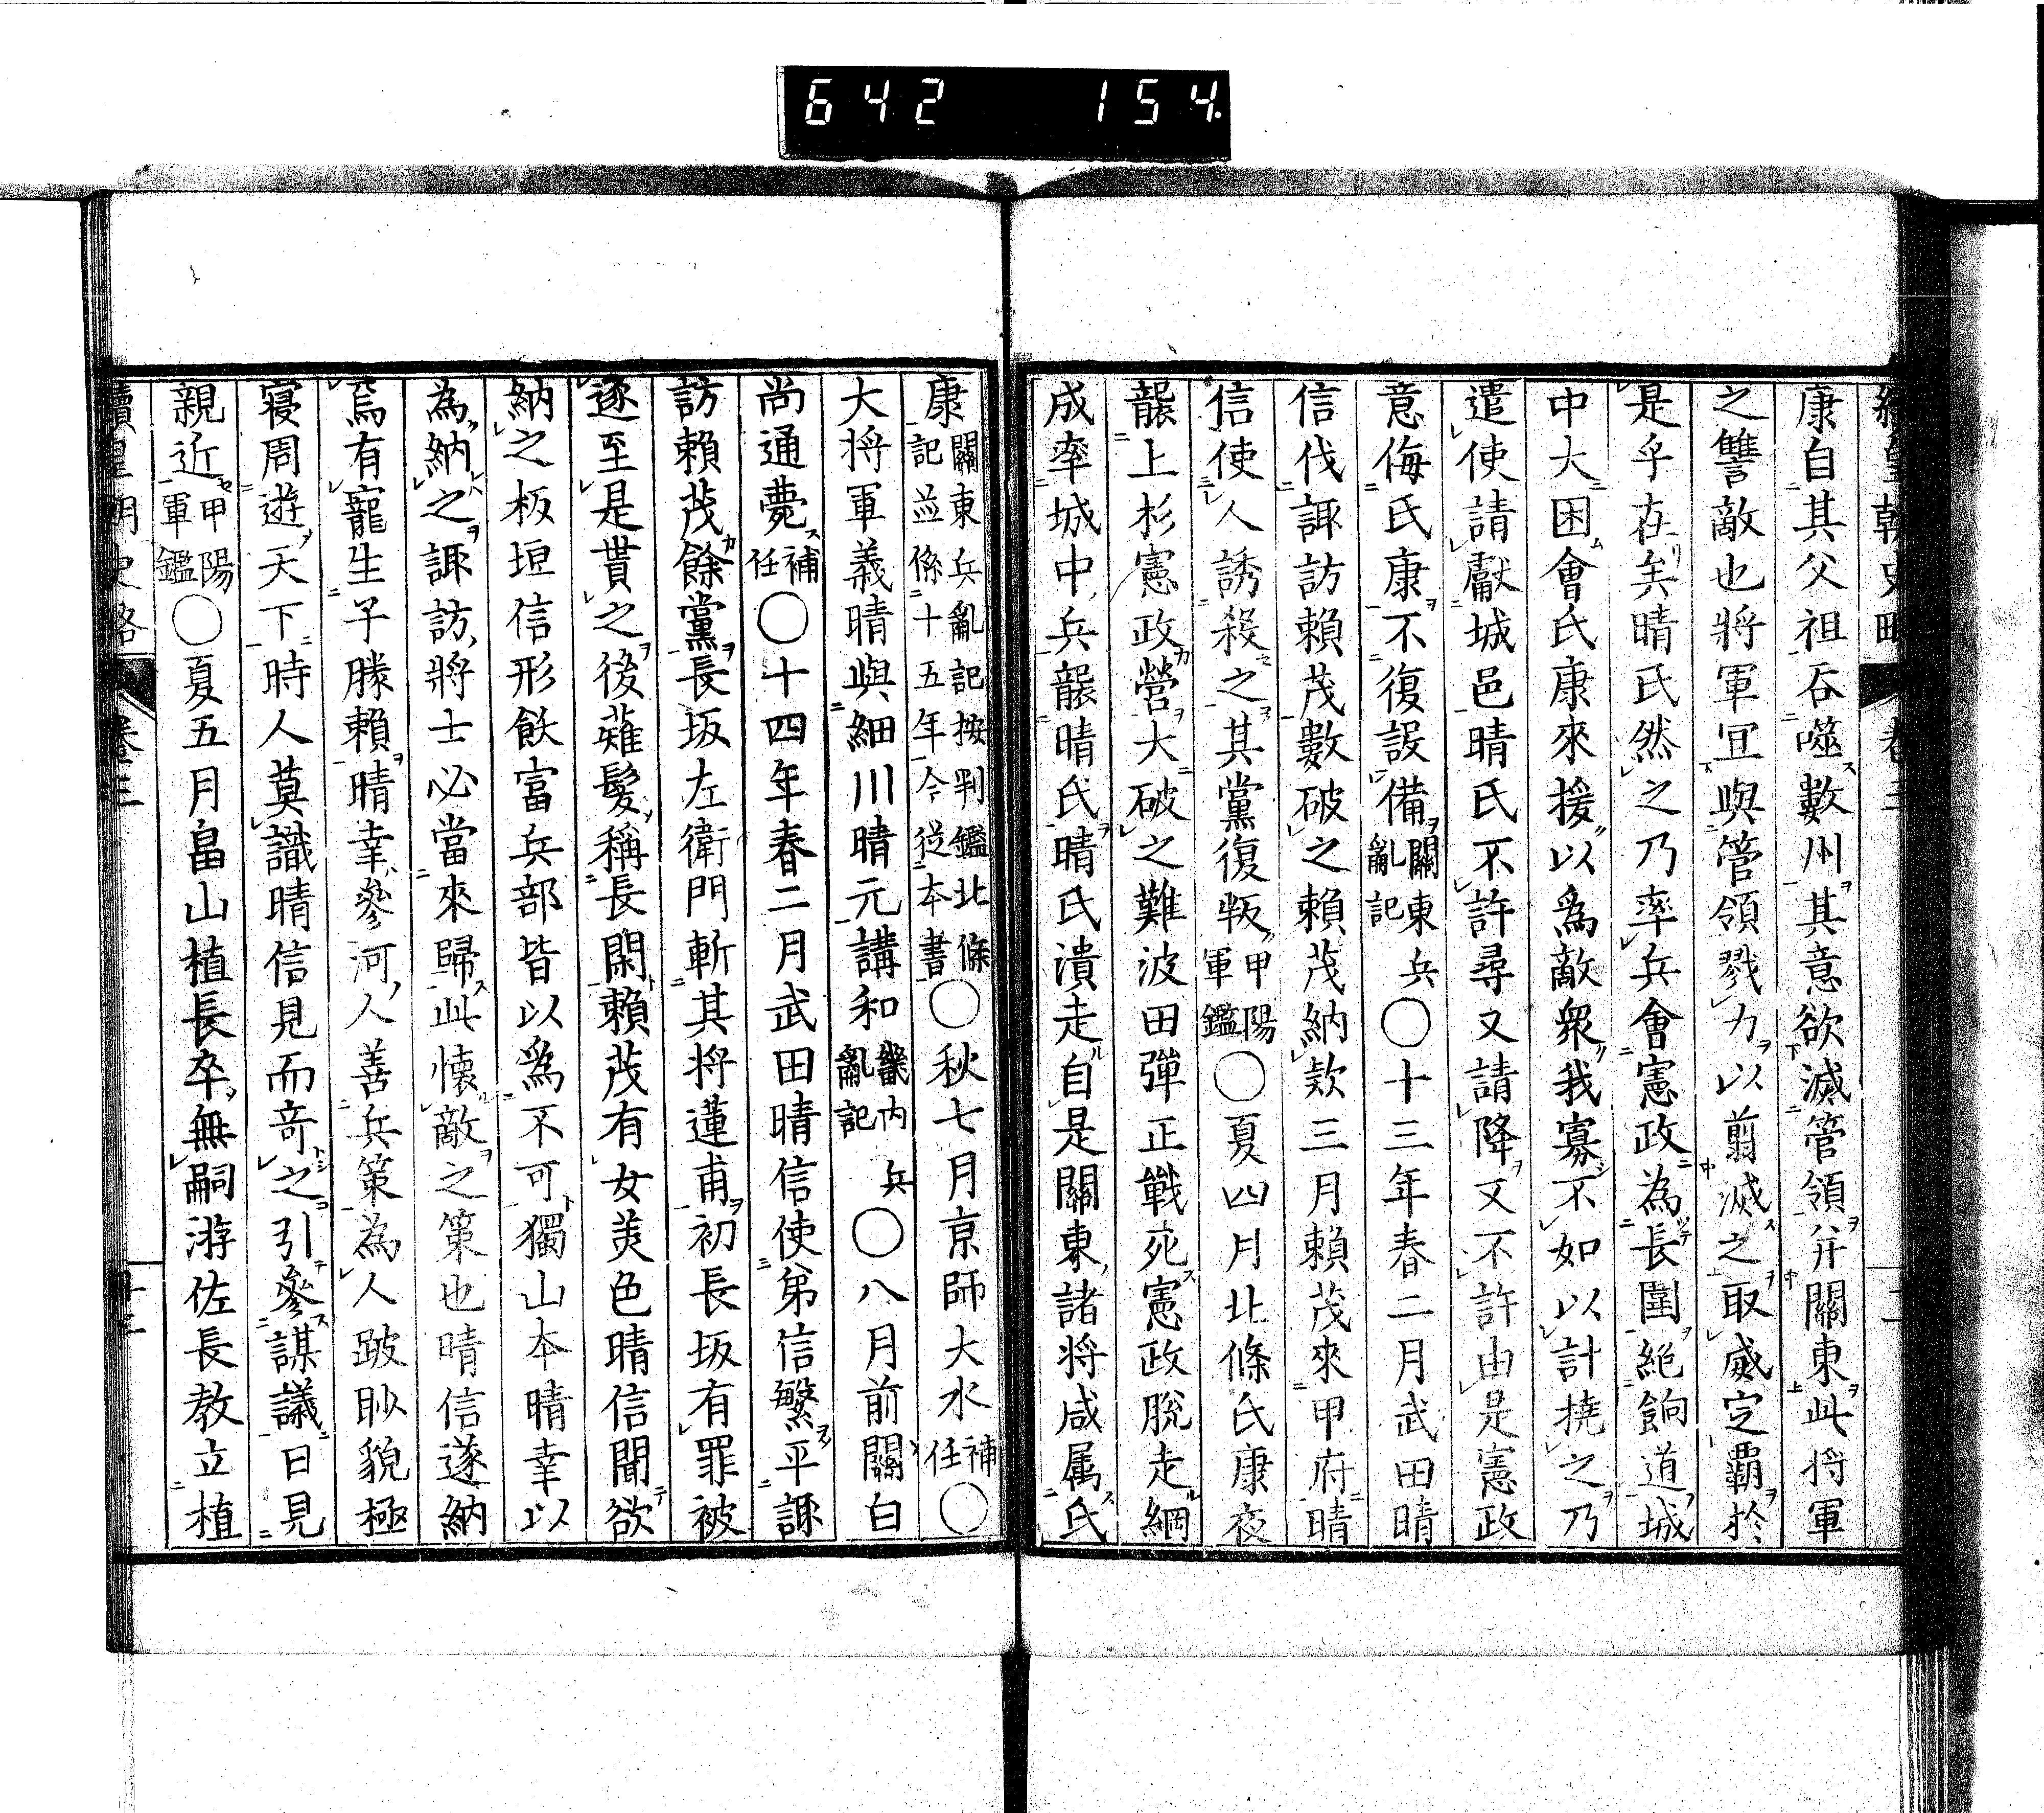 642 154.
康自其父祖吞噬數州其意欲滅管領并關東此将軍
之讐敵也將軍冝與管領戮力以翦滅之取威定覇於
是乎在矣晴氏然之乃率兵會憲政為長圍絶餉道城
中大困會氏康來援以爲敵衆我寡不如以計撓之乃
遣使請獻城邑晴氏不許尋又請降又不許由是憲政
意侮氏康不復設備關東兵亂記〇十三年春二月武田晴
信伐諏訪賴茂數破之賴茂納欵三月賴茂來甲府晴
信使人誘殺之其黨復叛甲陽軍鑑〇夏四月北條氏康夜
襲上杉憲政營大破之難波田彈正戰死憲政脫走綱
成率城中兵襲晴氏晴氏潰走自是關東諸将咸属氏
康關東兵亂記按判鑑北條記並係十五年今從本書〇秋七月京師大水補任〇
大将軍義晴與細川晴元講和畿内兵亂記〇八月前關白
尚通薨補任〇十四年春二月武田晴信使弟信繁平諏
訪賴茂餘黨長坂左衛門斬其将蓮甫初長坂有罪被
逐至是貰之後薙髮稱長閑賴茂有女美色晴信聞欲
納之板垣信形飫富兵部皆以爲不可獨山本晴幸以
為納之諏訪將士必當來歸此懷敵之策也晴信遂納
焉有寵生子勝賴晴幸參河人善兵策為人跛眇貌極
寝周遊天下時人莫識晴信見而竒之引參謀議日見
親近甲陽軍鑑〇夏五月畠山植長卒無嗣游佐長教立植